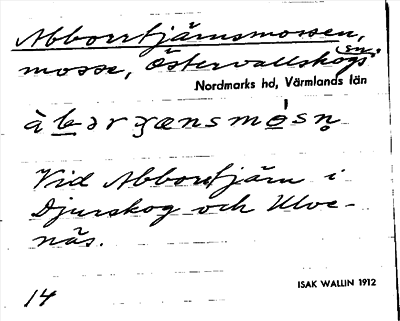 Abborrtjärnsmossen,
mosse, Östervallskogs sn.
Nordmarks hd, Värmlands län
Vid Abborrtjärn i
Djurskog och Ulve-
näs.
14
ISAK WALLIN 1912